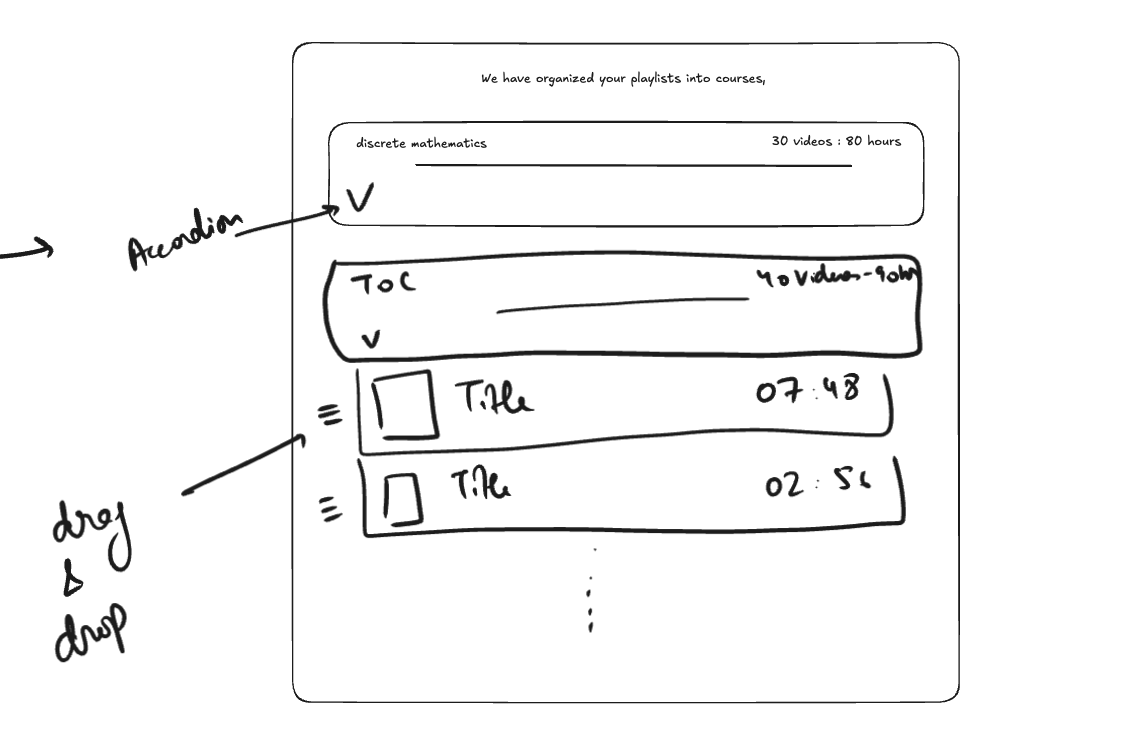 We have organized your playlists into courses,
discrete mathematics
30 videos : 80 hours
Accordion
ToC
40 Videos - 90hr
Title
07:48
Title
drag
&
drop